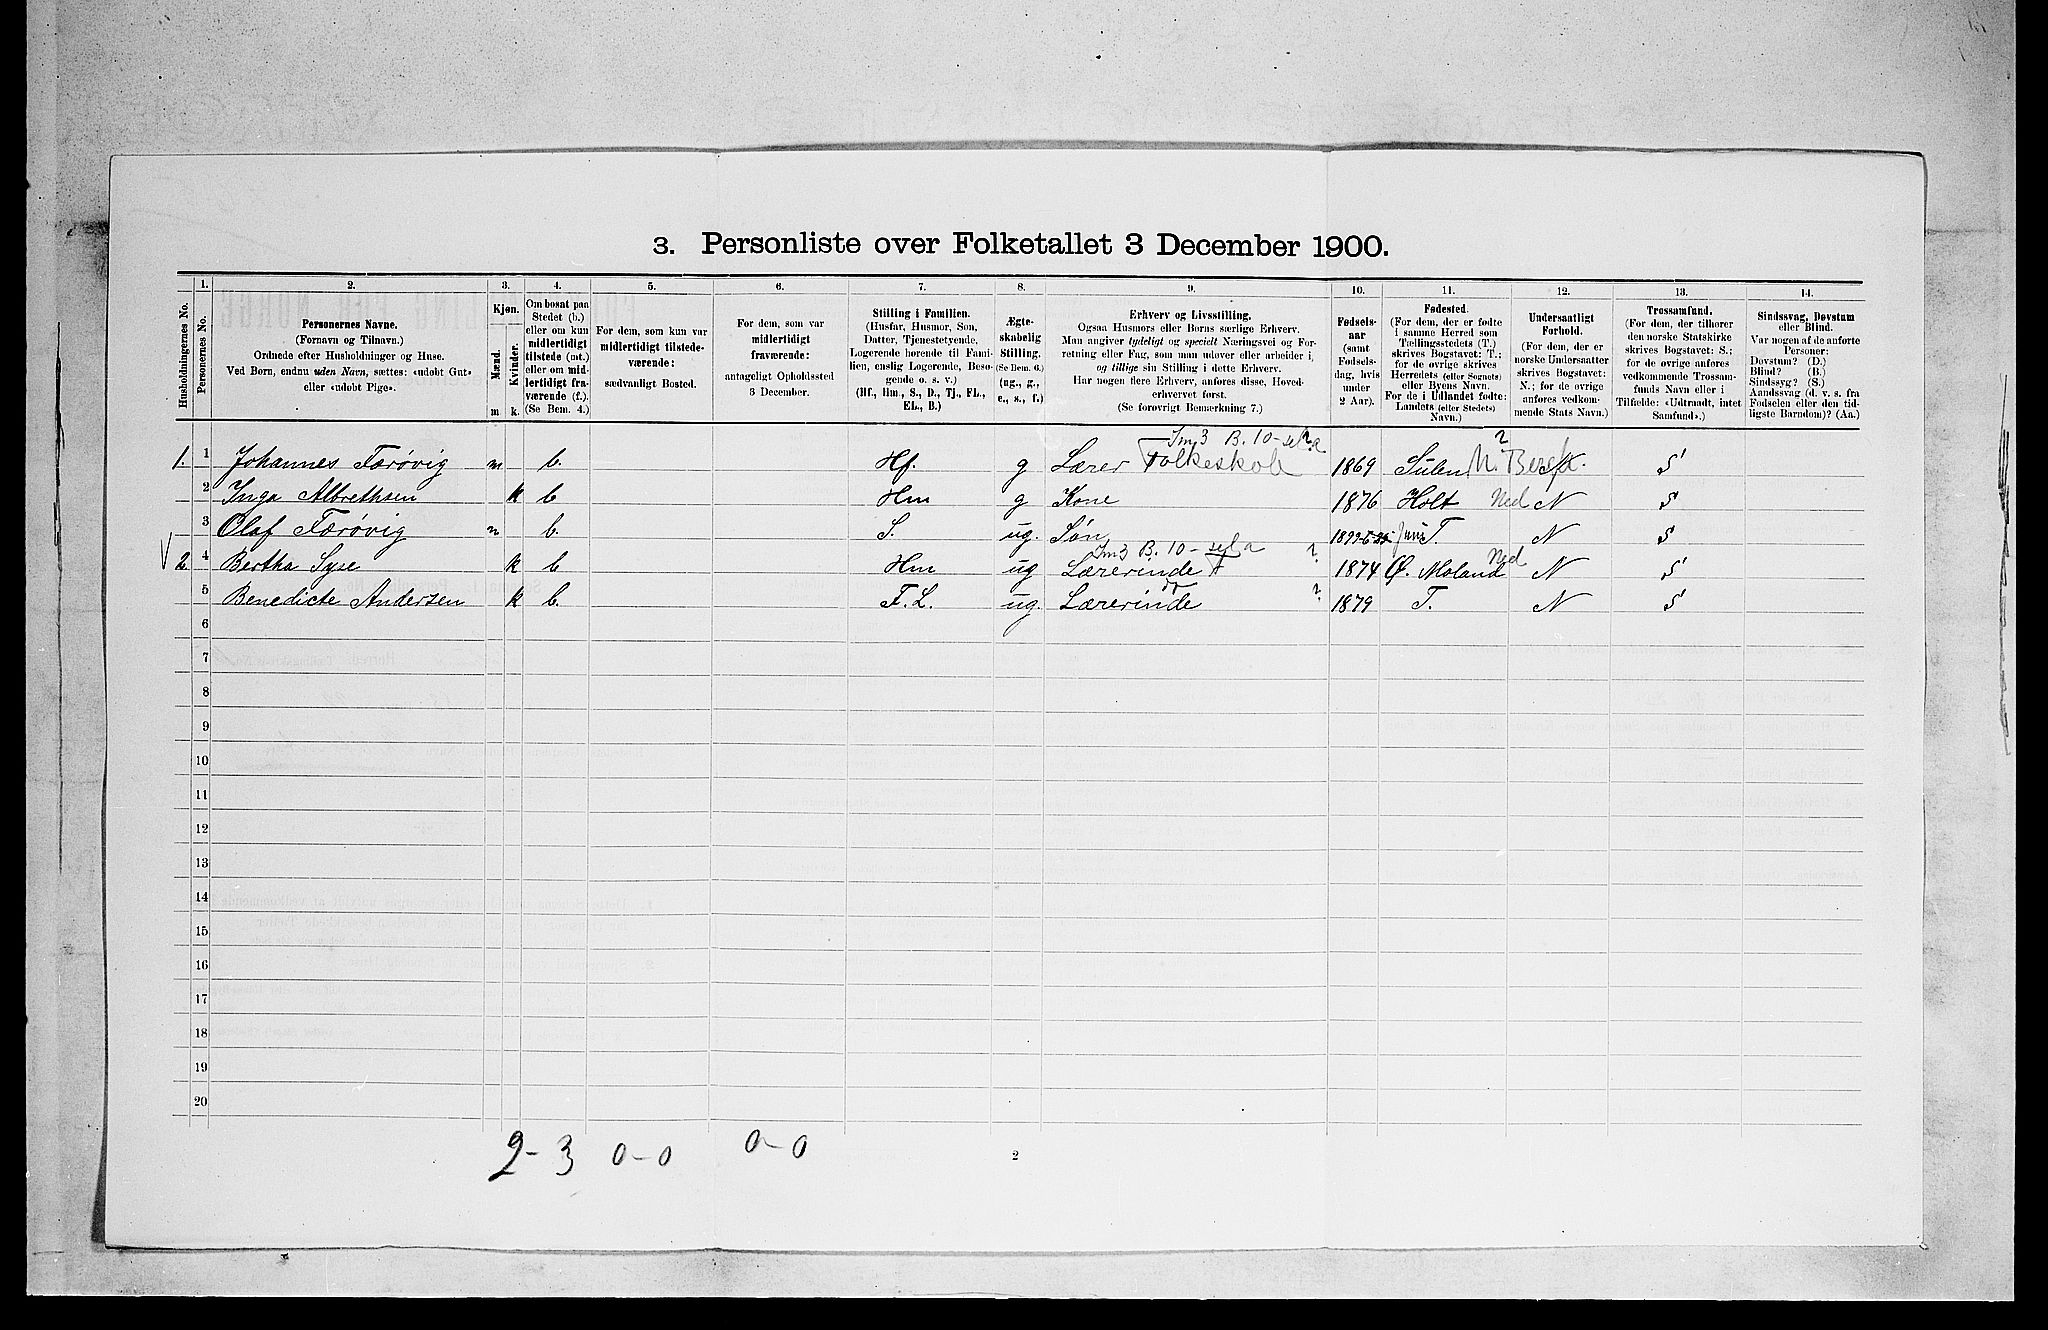 3. Personliste over Folketallet 3 December 1900.
Husholdningernes No.
1. Personernes No.
2. Personernes Navne. (Fornavn og Tilnavn.) Ordnede efter Husholdninger og Huse. Ved Børn, endnu uden Navn, sættes: «udøbt Gut» eller «udøbt Pige».
3. Kjøn. Mænd. m Kvinder. k.
4. Om bosat paa Stedet (b.) eller om kun midlertidigt tilstede (mt.) eller om midlertidigt fraværende (f.). (Se Bem. 4.)
5. For dem, som kun var midlertidigt tilstedeværende: sædvanligt Bosted.
6. For dem, som var midlertidigt fraværende: antageligt Opholdssted 3 December.
7. Stilling i Familien. (Husfar, Husmor, Søn, Datter, Tjenestetyende, Logerende hørende til Familien, enslig Logerende, Besøgende o. s. v.) (Hf., Hm., S., D., Tj., FL., EL., B.)
8. Ægteskabelig Stilling. (Se Bem. 6.) (ug., g., e., s., f.)
9. Erhverv og Livsstilling. Ogsaa Husmors eller Børns særlige Erhverv. Man angiver tydeligt og specielt Næringsvei og Forretning eller Fag, som man udøver eller arbeider i, og tillige sin Stilling i dette Erhverv. Har nogen flere Erhverv, anføres disse, Hovederhvervet først. (Se forøvrigt Bemærkning 7.)
10. Fødselsaar (samt Fødselsdag, hvis under 2 Aar).
11. Fødested. (For dem, der er fødte i samme Herred som Tællingsstedets (T.) skrives Bogstavet: T.; for de øvrige skrives Herredets (eller Sognets) eller Byens Navn. For de i Udlandet fødte: Landets (eller Stedets) Navn.)
12. Undersaatligt Forhold. (For dem, der er norske Undersaatter skrives Bogstavet: N.; for de øvrige anføres vedkommende Stats Navn.)
13. Trossamfund. (For dem, der tilhører den norske Statskirke skrives Bogstavet: S.; for de øvrige anføres vedkommende Trossamfunds Navn eller i Tilfælde: «Udtraadt, intet Samfund».)
14. Sindssvag, Døvstum eller Blind. Var nogen af de anførte Personer: Døvstum? (D.) Blind? (B.) Sindssyg? (S.) Aandssvag (d. v. s. fra Fødselen eller den tidligste Barndom)? (Aa.)
1. 1 Johannes Færøvig m b. Hf. g Lærer Folkeskole 1869 Sulen N. N S
2 Inga Albrethsen k b Hm g Kone 1876 Holt Ned N S
3 Olaf Færøvig m b. S. ug. Søn Juni T. N S
2. 4 Bertha Syse k b Hm ug Lærerinde F ? 1874 Ø. Moland Ned N S
5 Benedicte Andersen k b. F.L. ug. Lærerinde ? 1879 T. N S
6
7
8
9
10
11
12
13
14
15
16
17
18
19
20
2-3 0-0 0-0
2